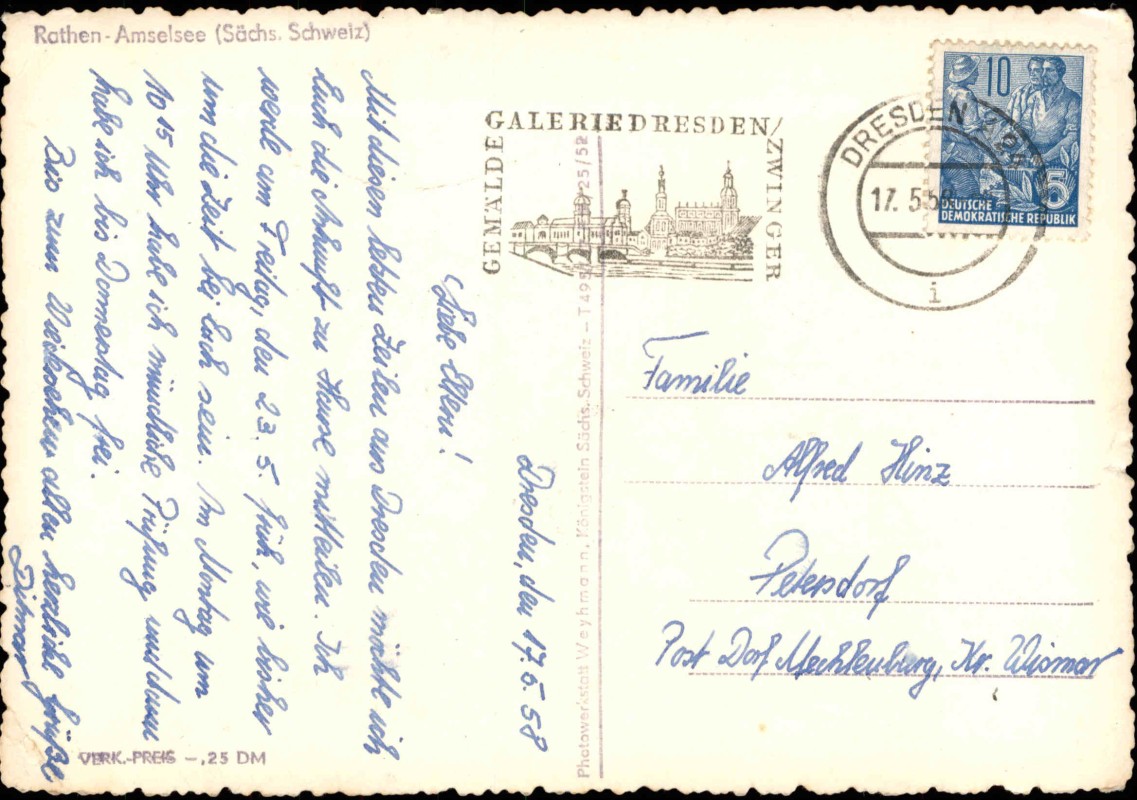 Rathen-Amselsee (Sächs. Schweiz)
Dresden, den 17.5.58
Liebe Eltern!
Mit diesen letzten Zeilen aus Dresden möchte ich
Euch die Ankunft zu Hause mitteilen. Ich
werde am Freitag, den 23.5. früh, wie bisher
um die Zeit bei Euch sein. Am Montag um
10 15 Uhr habe ich mündliche Prüfung und dann
habe ich bis Donnerstag frei.
Bis zum Wiedersehen allen herzliche Grüße
VERK.-PREIS -,25 DM
Photowerkstatt Weyhmann, Königstein Sächs. Schweiz – T 495
25/52
GEMÄLDE
GALERIE DRESDEN/
ZWINGER
DRESDEN
17.5.58
i
10
5
DEUTSCHE
DEMOKRATISCHE REPUBLIK
Familie
Alfred Hinz
Petersdorf
Post Dorf Mecklenburg, Kr. Wismar